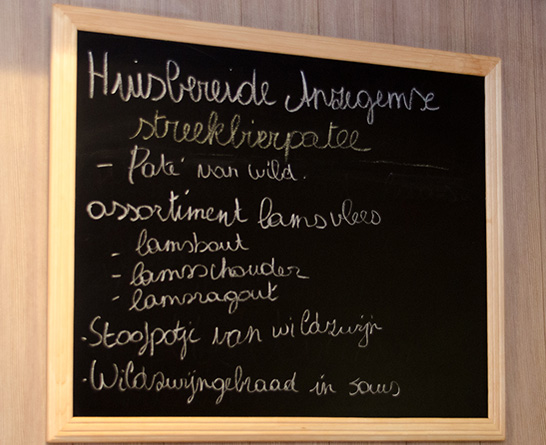 Huisbereide Anzegemse
streekbierpatee
- Paté van wild.
assortiment lamsvlees
- lamsbout
- lamsschouder
- lamsragout
- Stoofpotje van wildzwijn
- Wildzwijngebraad in saus